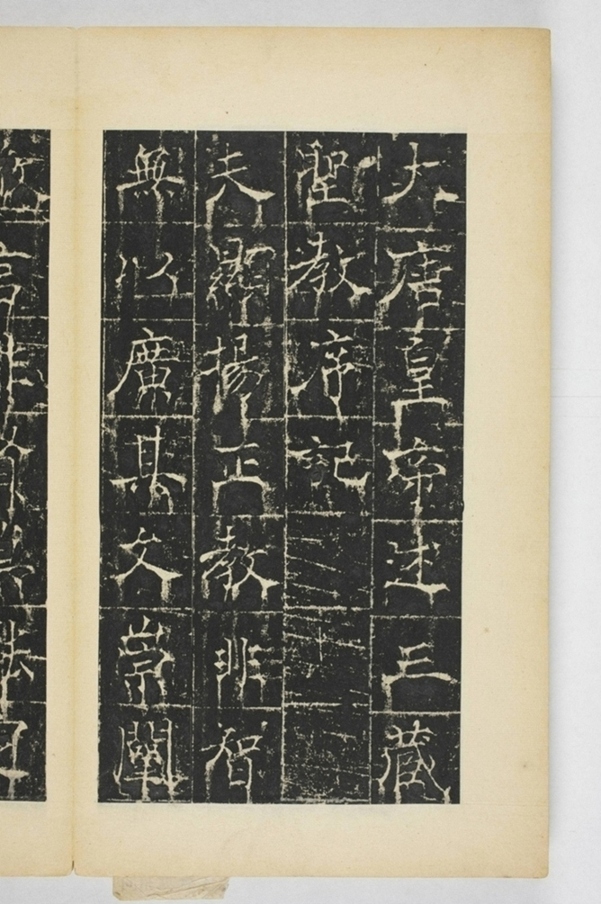 大唐皇帝述三藏
聖教序記
夫顯揚正教非智
無以廣其文崇闡